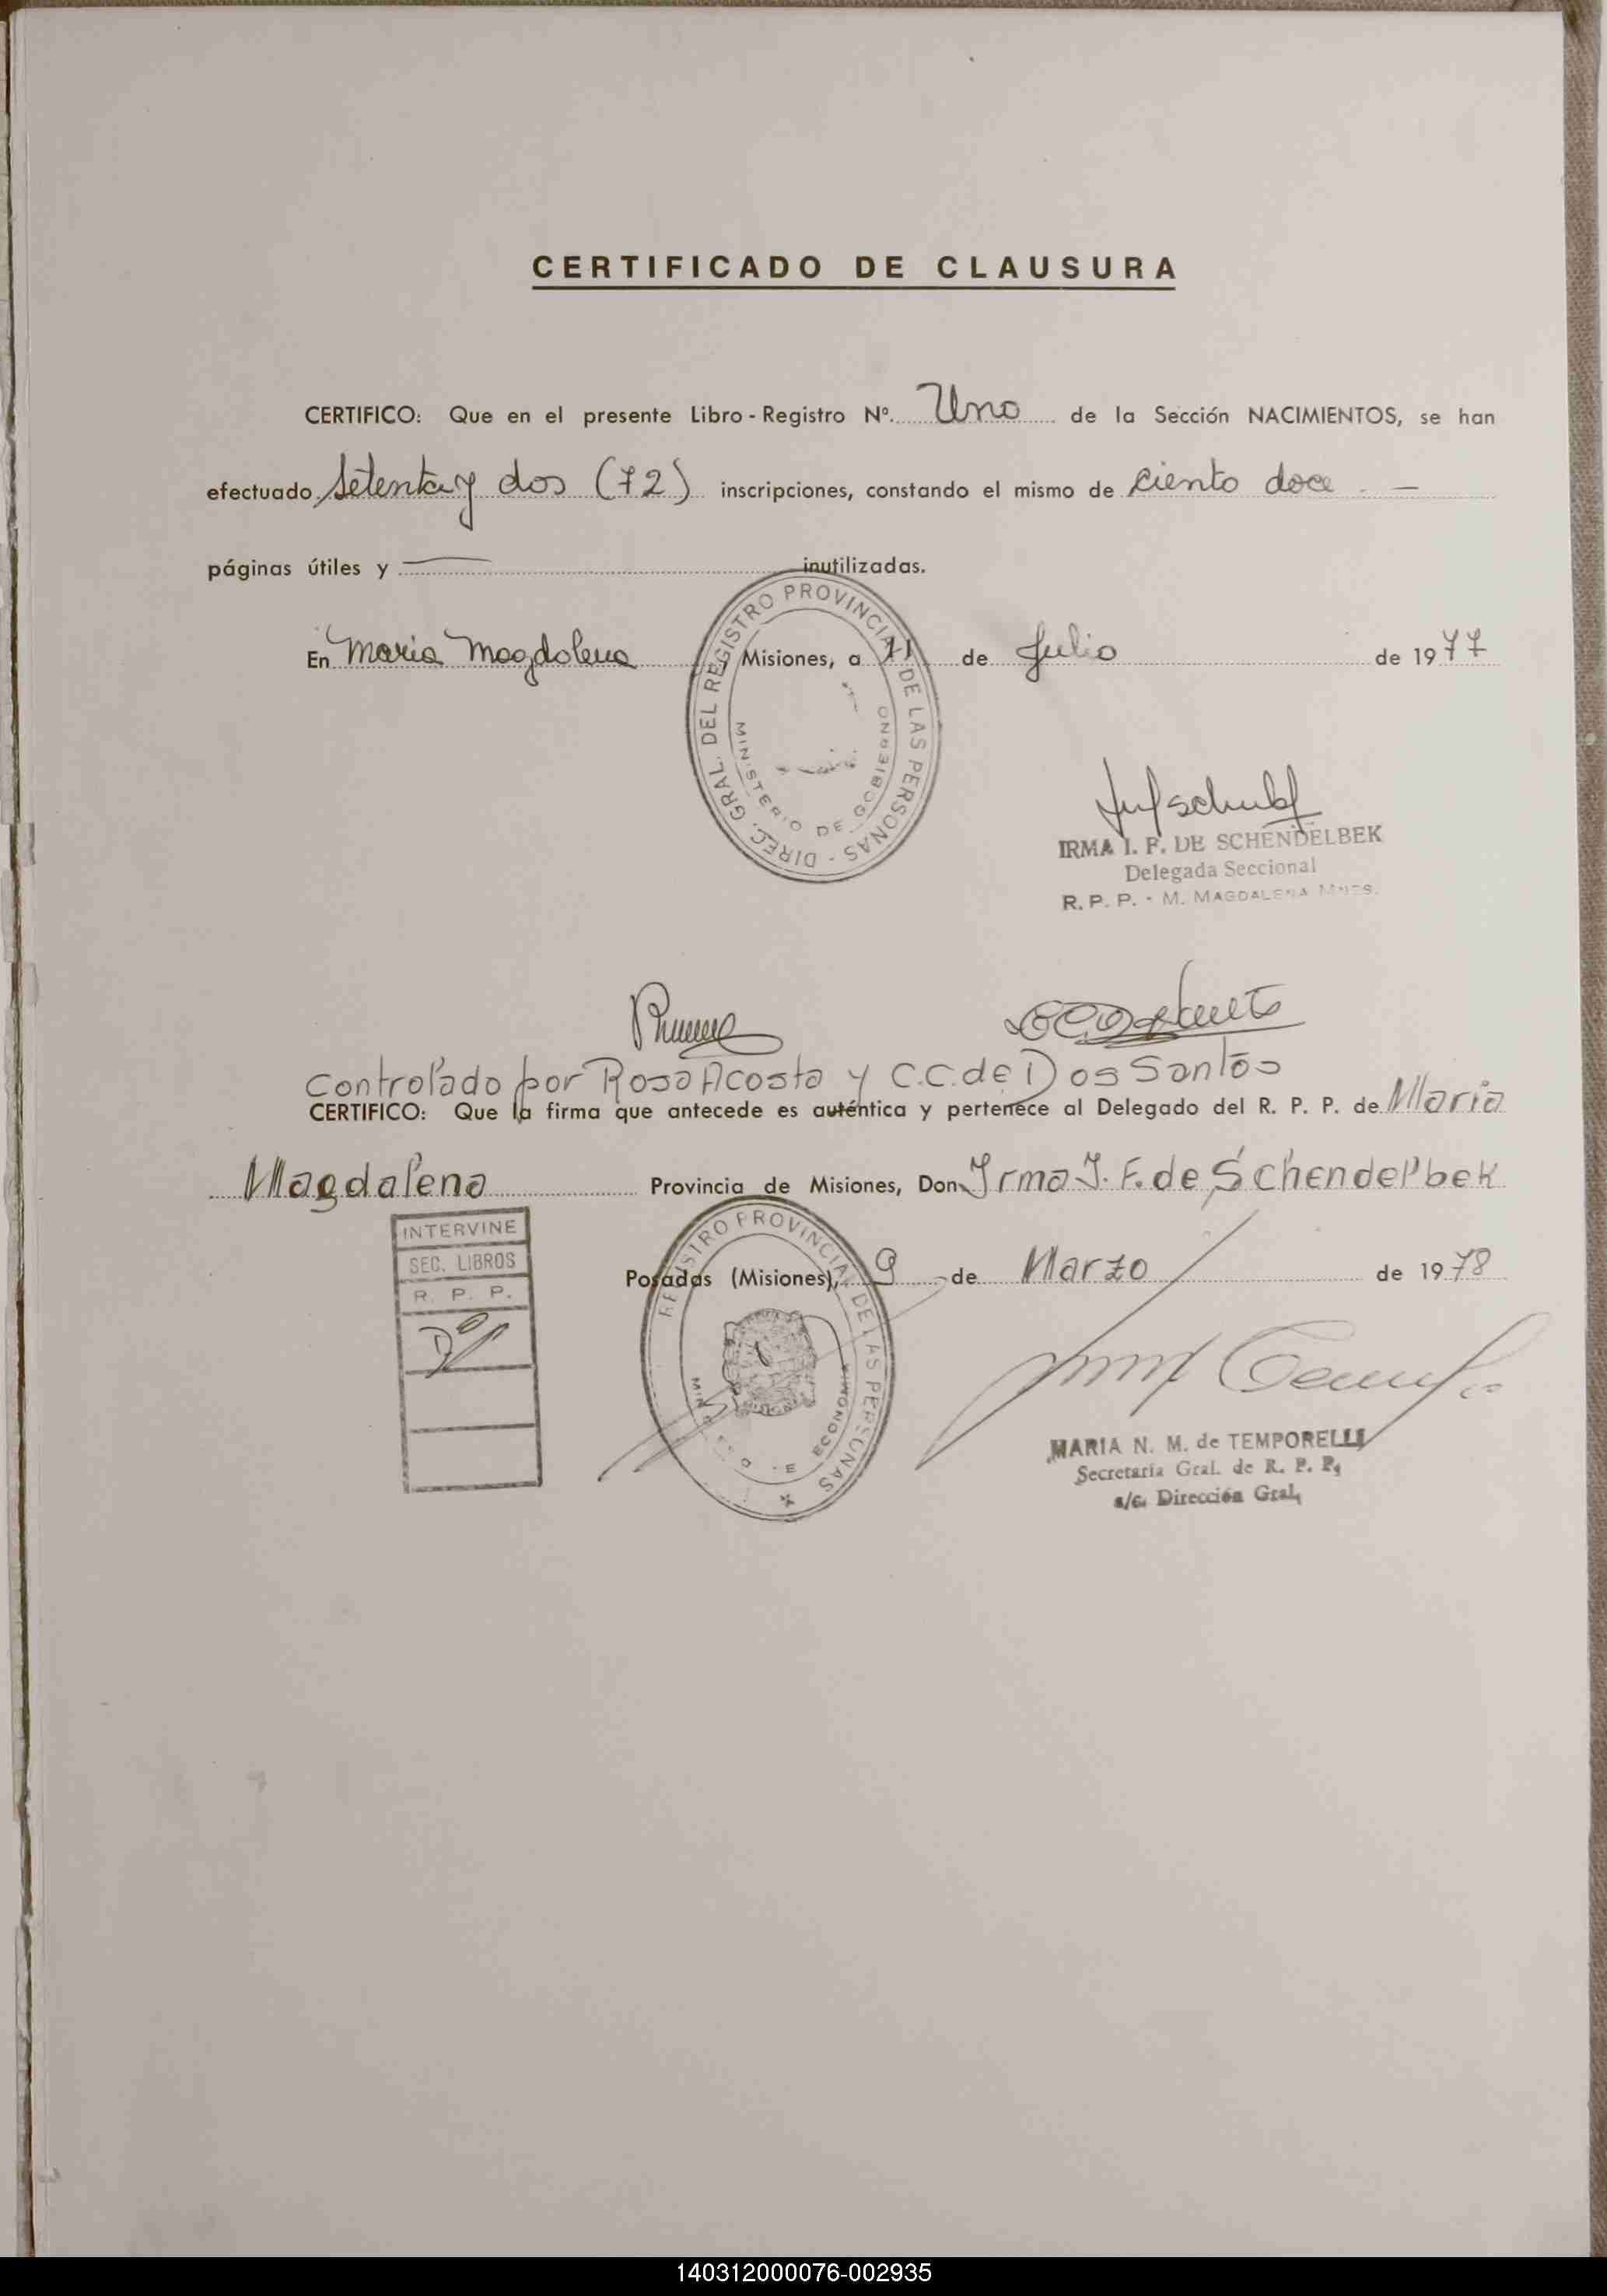 CERTIFICADO DE CLAUSURA
CERTIFICO: Que en el presente Libro - Registro Nº. Uno de la Sección NACIMIENTOS, se han
efectuado Setenta y dos (72) inscripciones, constando el mismo de ciento doce . —
páginas útiles y — inutilizadas.
En Maria Magdalena Misiones, a 11 de Julio de 1977
DIREC. GRAL. DEL REGISTRO PROVINCIAL DE LAS PERSONAS -
MINISTERIO DE GOBIERNO
IRMA I. F. DE SCHENDELBEK
Delegada Seccional
R. P. P. - M. MAGDALENA MNES.
Controlado por Rosa Acosta y C.C. de Dos Santos
CERTIFICO: Que la firma que antecede es auténtica y pertenece al Delegado del R. P. P. de Maria
Magdalena Provincia de Misiones, Don Irma I. F. de Schendelbek
INTERVINE
SEC. LIBROS
R. P. P.
Posadas (Misiones), 9 de Marzo de 1978
REGISTRO PROVINCIAL DE LAS PERSONAS
ECONOMIA
MARIA N. M. de TEMPORELLI
Secretaria Gral. de R. P. P.
a/c. Dirección Gral.
140312000076-002935